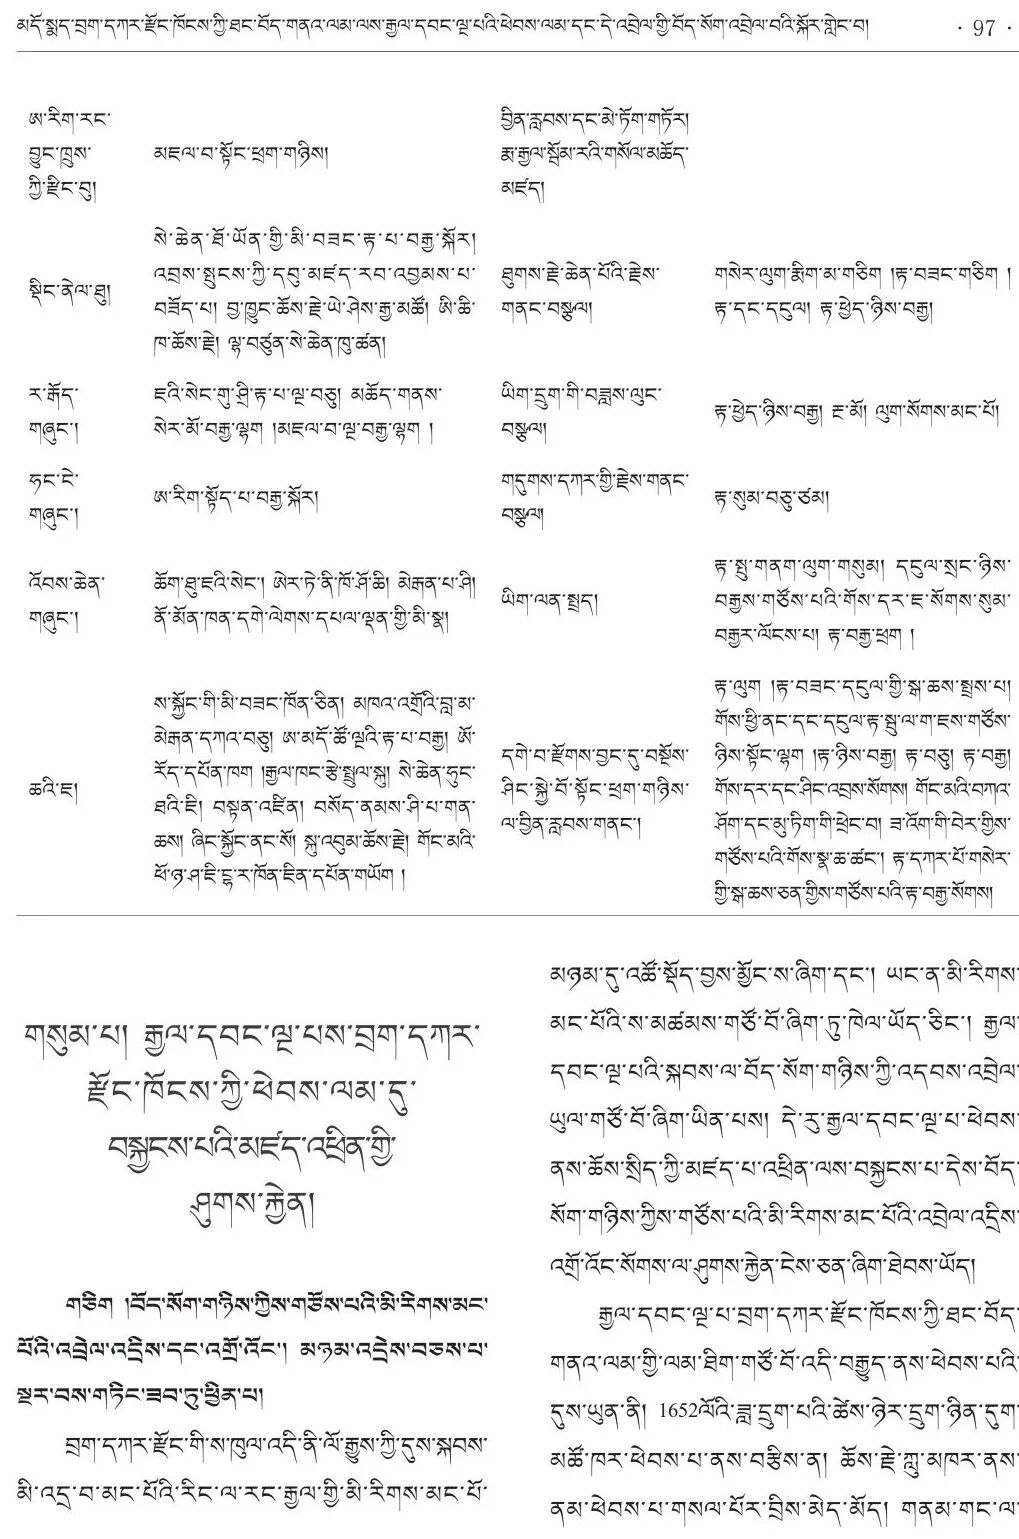 མདོ་སྨད་བྲག་དཀར་རྫོང་ཁོངས་ཀྱི་ཐང་བོད་གནའ་ལམ་ལས་རྒྱལ་དབང་ལྔ་པའི་ཕེབས་ལམ་དང་དེ་འབྲེལ་གྱི་བོད་སོག་འབྲེལ་བའི་སྐོར་གླེང་བ།
· 97 ·
ཨ་རིག་རང་
བྱུང་ཁྲུས་
ཀྱི་རྫིང་བུ།
མཇལ་བ་སྟོང་ཕྲག་གཉིས།
བྱིན་རླབས་དང་མེ་ཏོག་གཏོར།
རྨ་རྒྱལ་སྤོམ་རའི་གསོལ་མཆོད་
མཛད།
སྡིང་ནེལ་ཐུ།
སེ་ཆེན་ཐོ་ཡོན་གྱི་མི་བཟང་རྟ་པ་བརྒྱ་སྐོར།
འབྲས་སྤུངས་ཀྱི་དབུ་མཛད་རབ་འབྱམས་པ་
བཟོད་པ། བྱ་ཁྱུང་ཆོས་རྗེ་ཡེ་ཤེས་རྒྱ་མཚོ། ཨི་ཆི་
ཁ་ཆོས་རྗེ། ལྷ་བཙུན་སེ་ཆེན་ཁུ་ཚན།
ཐུགས་རྗེ་ཆེན་པོའི་རྗེས་
གནང་བསྩལ།
གསེར་ལུག་རྨིག་མ་གཅིག །རྟ་བཟང་གཅིག །
རྟ་དང་དངུལ། རྟ་ཕྱེད་ཉིས་བརྒྱ།
ར་རྒོད་
གཞུང་།
ཇའི་སེང་གུ་ཤྲི་རྟ་པ་ལྔ་བཅུ། མཆོད་གནས་
སེར་མོ་བརྒྱ་ལྷག །མཇལ་བ་ལྔ་བརྒྱ་ལྷག །
ཡིག་དྲུག་གི་བཟླས་ལུང་
བསྩལ།
རྟ་ཕྱེད་ཉིས་བརྒྱ། ང་མོ། ལུག་སོགས་མང་པོ།
ཧང་ངེ་
གཞུང་།
ཨ་རིག་སྟོད་པ་བརྒྱ་སྐོར།
གདུགས་དཀར་གྱི་རྗེས་གནང་
བསྩལ།
རྟ་སུམ་བཅུ་ཙམ།
འོབས་ཆེན་
གཞུང་།
ཆོག་ཐུ་ཇའི་སེང་། ཨེར་ཏེ་ནི་ཁོ་ཤོ་ཆི། མེརྒན་པ་ཤི།
ནོ་མོན་ཁན་དགེ་ལེགས་དཔལ་ལྡན་གྱི་མི་སྣ།
ཡིག་ལན་སྤྲད།
རྟ་སྤུ་གནག་ལུག་གསུམ། དངུལ་སྲང་ཉིས་
བརྒྱས་གཙོས་པའི་གོས་དར་ཇ་སོགས་སུམ་
བརྒྱར་ལོངས་པ། རྟ་བརྒྱ་ཕྲག །
ཆའི་ཇ།
ས་སྐྱོང་གི་མི་བཟང་ཁོན་ཅིན། མཁའ་འགྲོའི་བླ་མ་
མེརྒན་དཀའ་བཅུ། ཨ་མདོ་ཚོ་ལྔའི་རྟ་པ་བརྒྱ། ཨོ་
རོད་དཔོན་ཁག །རྒྱལ་ཁང་རྩེ་སྤྲུལ་སྐུ། སེ་ཆེན་ཧུང་
ཐའི་ཇི། བསྟན་འཛིན། བསོད་ནམས་ཤི་པ་གན་
ཆས། ཞིང་སྐྱོང་ནང་སོ། སྐུ་འབུམ་ཆོས་རྗེ། གོང་མའི་
ཕོ་ཉ་ཤ་ཇི་དྷ་ར་ཁོན་ཇིན་དཔོན་གཡོག །
དགེ་བ་རྫོགས་བྱང་དུ་བསྔོས་
ཤིང་སྐྱེ་བོ་སྟོང་ཕྲག་གཉིས་
ལ་བྱིན་རླབས་གནང་།
རྟ་ལུག །རྟ་བཟང་དངུལ་གྱི་སྒ་ཆས་སྤྲས་པ།
གོས་ཕྱི་ནང་དང་དངུལ་རྟ་སྦྲུ་ལ་ག་ཇས་གཙོས་
ཉིས་སྟོང་ལྷག །རྟ་ཉིས་བརྒྱ། རྟ་བཅུ། རྟ་བརྒྱ།
གོས་དར་དང་ཤིང་འབྲས་སོགས། གོང་མའི་བཀའ་
ཤོག་དང་མུ་ཏིག་གི་ཕྲེང་བ། ཟ་འོག་གི་བེར་གྱིས་
གཙོས་པའི་གོས་སྣ་ཆ་ཚང་། རྟ་དཀར་པོ་གསེར་
གྱི་སྒ་ཆས་ཅན་གྱིས་གཙོས་པའི་རྟ་བརྒྱ་སོགས།
གསུམ་པ། རྒྱལ་དབང་ལྔ་པས་བྲག་དཀར་
རྫོང་ཁོངས་ཀྱི་ཕེབས་ལམ་དུ་
བསྐྱངས་པའི་མཛད་འཕྲིན་གྱི་
ཤུགས་རྐྱེན།
གཅིག །བོད་སོག་གཉིས་ཀྱིས་གཙོས་པའི་མི་རིགས་མང་
པོའི་འབྲེལ་འདྲིས་དང་འགྲོ་འོང་། མཉམ་འདྲེས་བཅས་པ་
སྔར་བས་གཏིང་ཟབ་ཏུ་ཕྱིན་པ།
བྲག་དཀར་རྫོང་གི་ས་ཁུལ་འདི་ནི་ལོ་རྒྱུས་ཀྱི་དུས་སྐབས་
མི་འདྲ་བ་མང་པོའི་རིང་ལ་རང་རྒྱལ་གྱི་མི་རིགས་མང་པོ་
མཉམ་དུ་འཚོ་སྡོད་བྱས་མྱོང་ས་ཞིག་དང་། ཡང་ན་མི་རིགས་
མང་པོའི་ས་མཚམས་གཙོ་བོ་ཞིག་ཏུ་ཁེལ་ཡོད་ཅིང་། རྒྱལ་
དབང་ལྔ་པའི་སྐབས་ལ་བོད་སོག་གཉིས་ཀྱི་འདབས་འབྲེལ་
ཡུལ་གཙོ་བོ་ཞིག་ཡིན་པས། དེ་རུ་རྒྱལ་དབང་ལྔ་པ་ཕེབས་
ནས་ཆོས་སྲིད་ཀྱི་མཛད་པ་འཕྲིན་ལས་བསྐྱངས་པ་དེས་བོད་
སོག་གཉིས་ཀྱིས་གཙོས་པའི་མི་རིགས་མང་པོའི་འབྲེལ་འདྲིས་
འགྲོ་འོང་སོགས་ལ་ཤུགས་རྐྱེན་ངེས་ཅན་ཞིག་ཐེབས་ཡོད།
རྒྱལ་དབང་ལྔ་པ་བྲག་དཀར་རྫོང་ཁོངས་ཀྱི་ཐང་བོད་
གནའ་ལམ་གྱི་ལམ་ཐིག་གཙོ་བོ་འདི་བརྒྱུད་ནས་ཕེབས་པའི་
དུས་ཡུན་ནི། 1652ལོའི་ཟླ་དྲུག་པའི་ཚེས་ཉེར་དྲུག་ཉིན་དུག་
མཚོ་ཁར་ཕེབས་པ་ནས་བརྩིས་ན། ཆོས་རྗེ་ཀླུ་མཁར་ནས་
ནམ་ཕེབས་པ་གསལ་པོར་བྲིས་མེད་མོད། གནམ་གང་ལ་